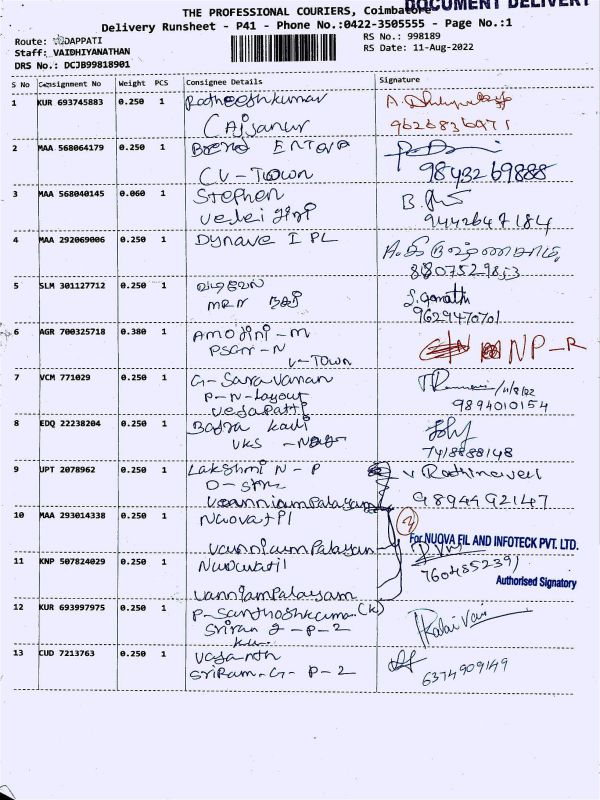 DOCUMENT DELIVERY
THE PROFESSIONAL COURIERS, Coimbatore
Delivery Runsheet - P41 - Phone No.:0422-3505555 - Page No.:1
Route: VEDAPPATI
Staff: VAIDHIYANATHAN
DRS No.: DCJB99818901
RS No.: 998189
RS Date: 11-Aug-2022
S No Consignment No Weight PCS Consignee Details Signature
1 KUR 693745883 0.250 1 Ratheeshkumar
9626836971
2 MAA 568064179 0.250 1
CV-Town 9843269888
3 MAA 568040145 0.060 1 Stephen
9442647184
4 MAA 292069006 0.250 1 Dynave I PL
8807529853
5 SLM 301127712 0.250 1 வடிவேல் S. Gomathi
9629470701
6 AGR 700325718 0.380 1 Amojini-M NP-R
PSGR-N
V-Town
7 VCM 771029 0.250 1 G-Saravanan 11/8/22
P-N-Layout
vedapatti 9894010154
8 EDQ 22238204 0.250 1
VKS -Nagar 7418888148
9 UPT 2078962 0.250 1 Lakshmi N-P V Rathinavel
Vanniampalayam 9894492147
10 MAA 293014338 0.250 1 Nuova+PI
Vanniampalayam
For NUOVA FIL AND INFOTECK PVT. LTD.
11 KNP 507824029 0.250 1 7604852391
Vanniampalayam Authorised Signatory
12 KUR 693997975 0.250 1 P-Santhoshkumar (K) Kalai Vani
Sriram G-P-2
13 CUD 7213763 0.250 1 Vasanth
SriRam-G-P-2 6374909149